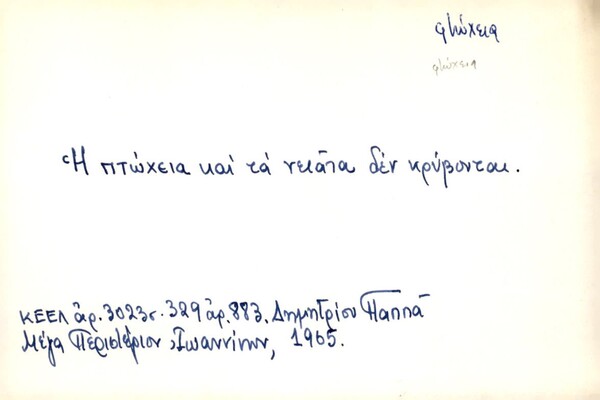 φτώχεια
φτώχεια
Ἡ πτώχεια καί τά νειᾶτα δέν κρύβονται.
ΚΕΕΛ ἀρ. 3023 σ. 329 ἀρ. 883. Δημητρίου Παππᾶ
Μέγα Περιστέριον Ἰωαννίνων, 1965.